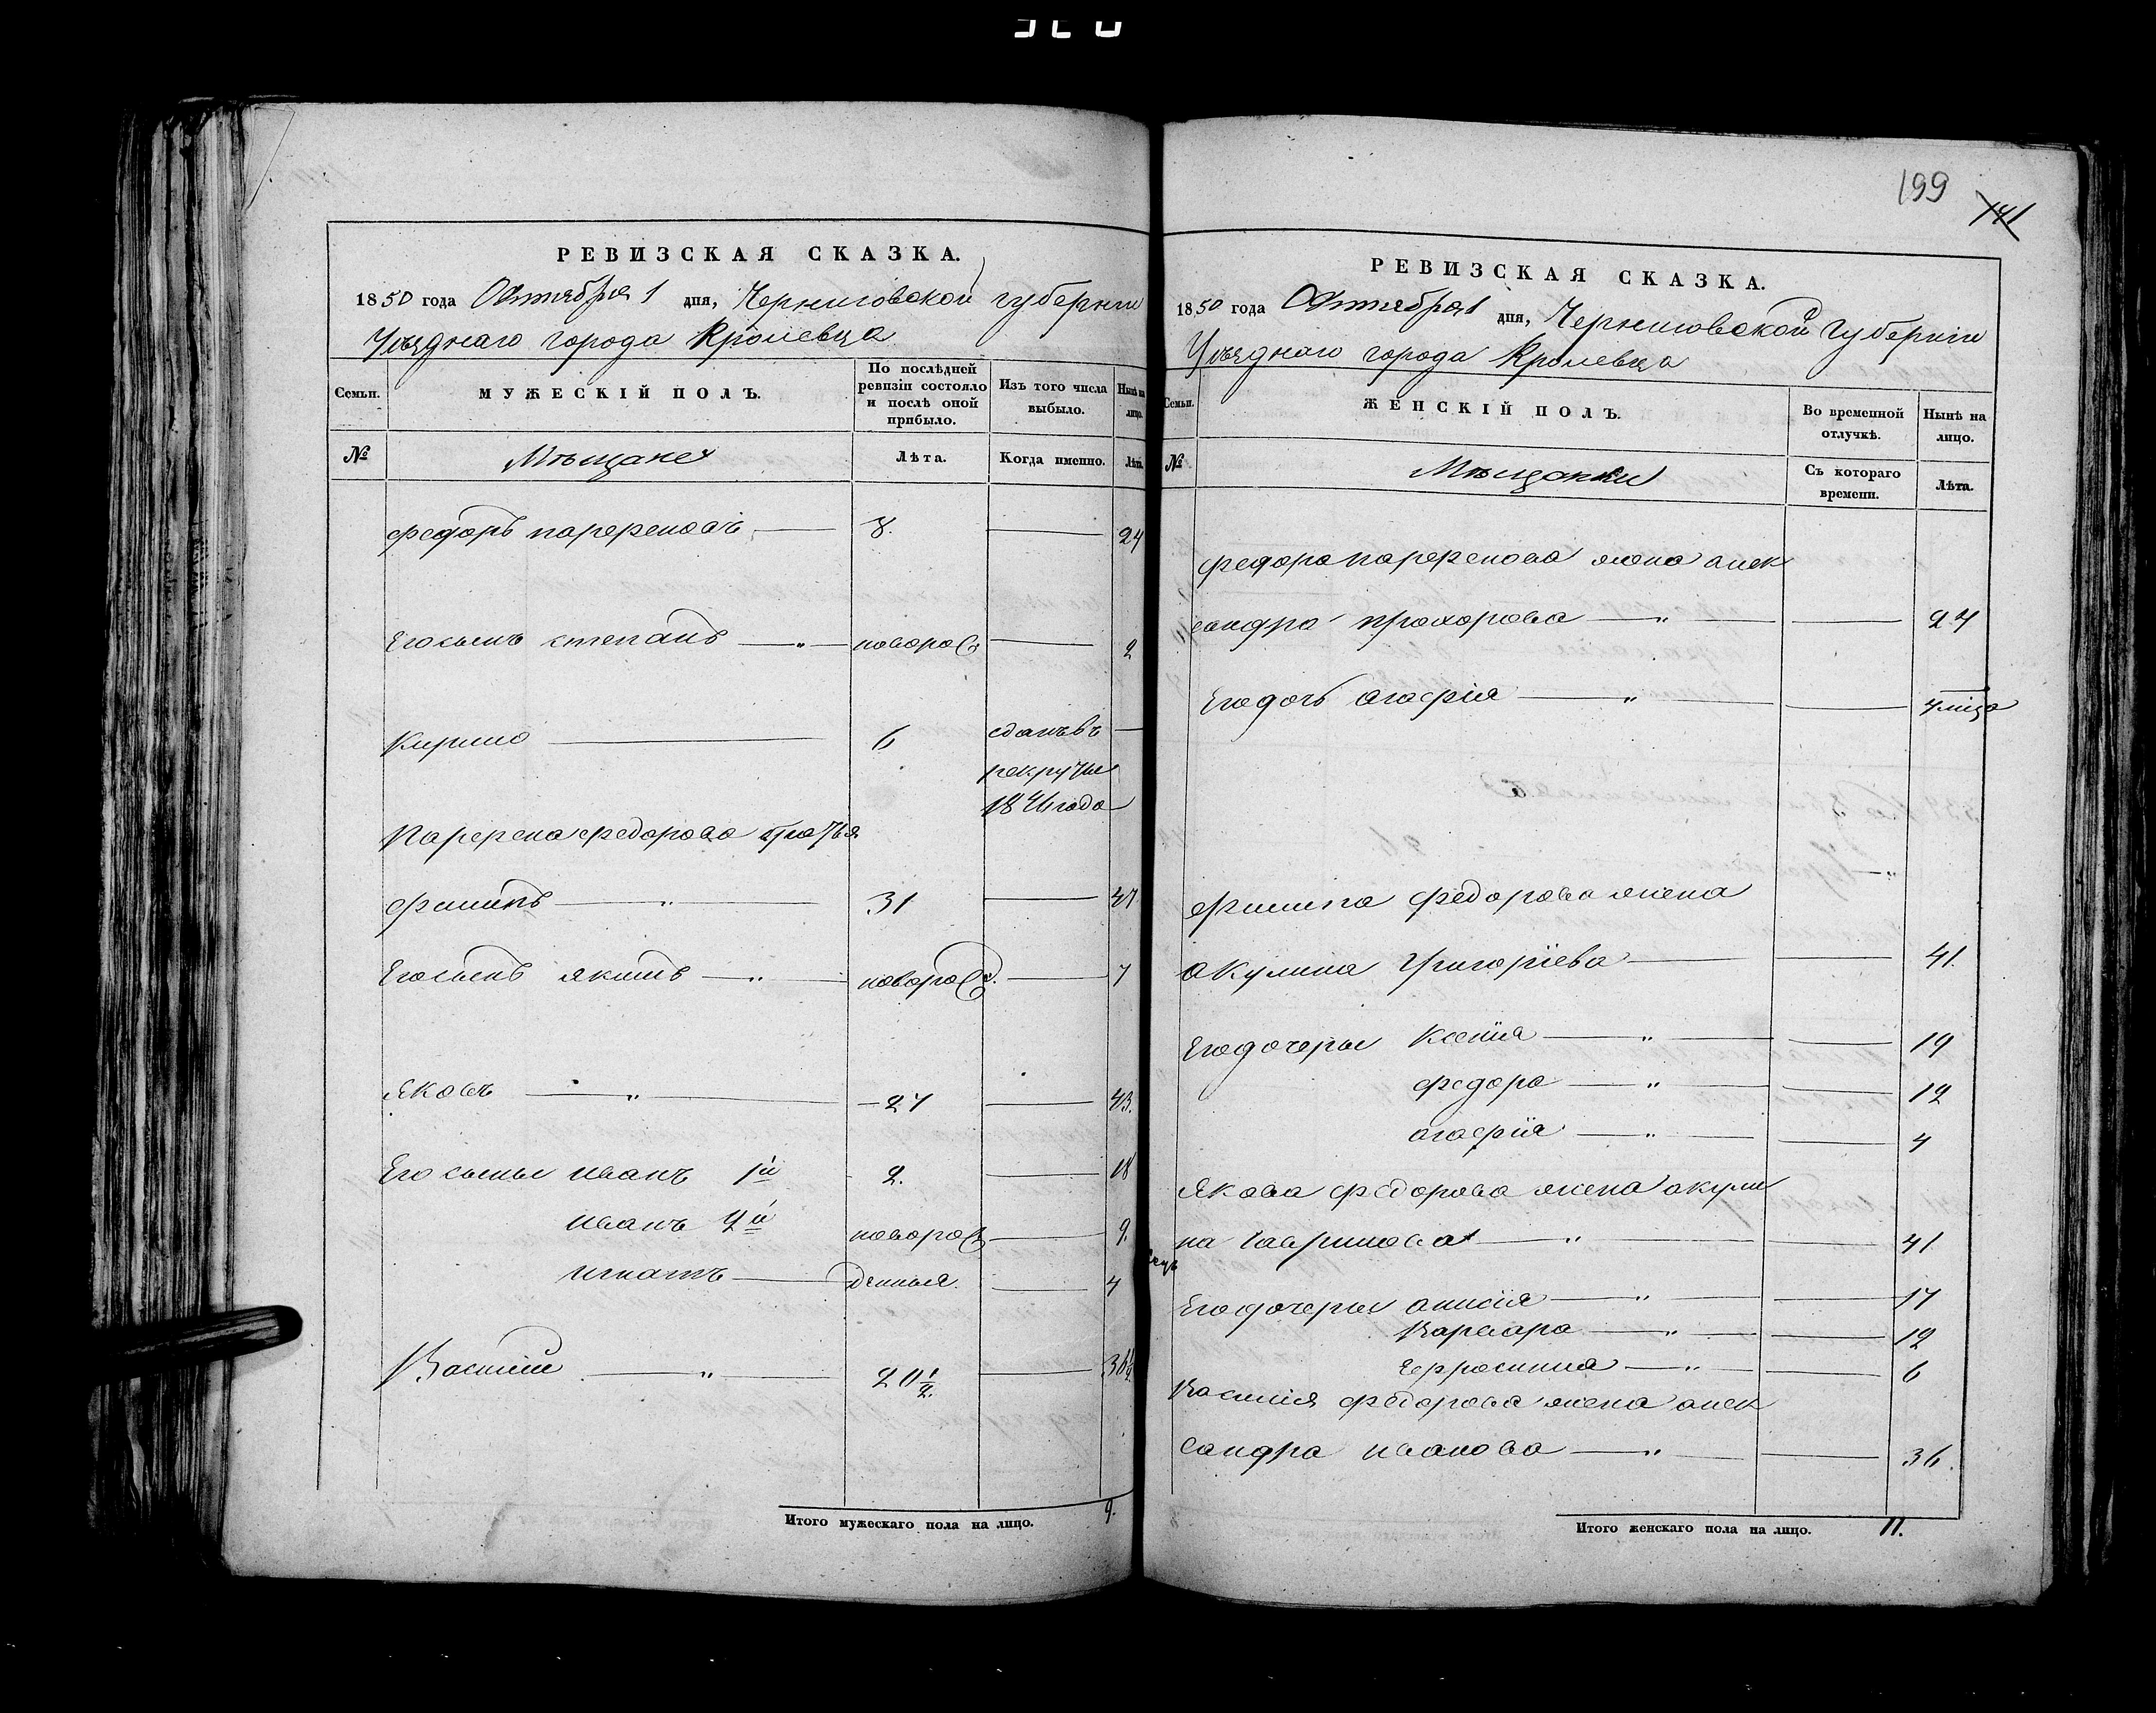 199
141
РЕВИЗСКАЯ СКАЗКА.
1850 года Октября 1 дня, Черниговской губерніи
Уѣзднаго города Кролевца
Семьи. МУЖЕСКІЙ ПОЛЪ. По послѣдней ревизіи состояло и послѣ оной прибыло. Изъ того числа выбыло. Нынѣ на лицо.
№ Мѣщане Лѣта. Когда именно. Лѣта.
федоръ парфеновъ — 8. — 24
Его сынъ степанъ — " — новорож — 2
Кирило — 6 сданъ въ —
рекруты
1846 года
Парфена федорова братья
филипъ — " — 31 — 47
Его сынъ якимъ — " — новорожд. — 7
яковъ — " — 27 — 43.
Его сыны иванъ 1й 2. — 18
иванъ 2й новорож — 9.
игнатъ — денныя. — 4
Василій — " — 20 1/2. — 36 1/2
Итого мужескаго пола на лицо. 9.
РЕВИЗСКАЯ СКАЗКА.
1850 года Октября 1 дня, Черниговской Губерніи
Уѣзднаго города Кролевца
Семьи. ЖЕНСКІЙ ПОЛЪ. Во временной отлучкѣ. Нынѣ на лицо.
№ Мѣщанки Съ котораго времени. Лѣта.
федора парфенова жена алек
сандра прохорова — " — — 24
Его дочь агафія — " — —
филипа федорова жена
акулина Григоріева — — 41.
Его дочери Ксенія — " — — 19
федора — " — — 12
агафія — " — — 4
якова федорова жена акули
на гаврилова — " — — 41
Его дочери анисія — " — — 17
Варвара — " — — 12
Ефросинія — " — — 6
Василія федорова жена алек
сандра иванова — " — — 36.
Итого женскаго пола на лицо. 11.